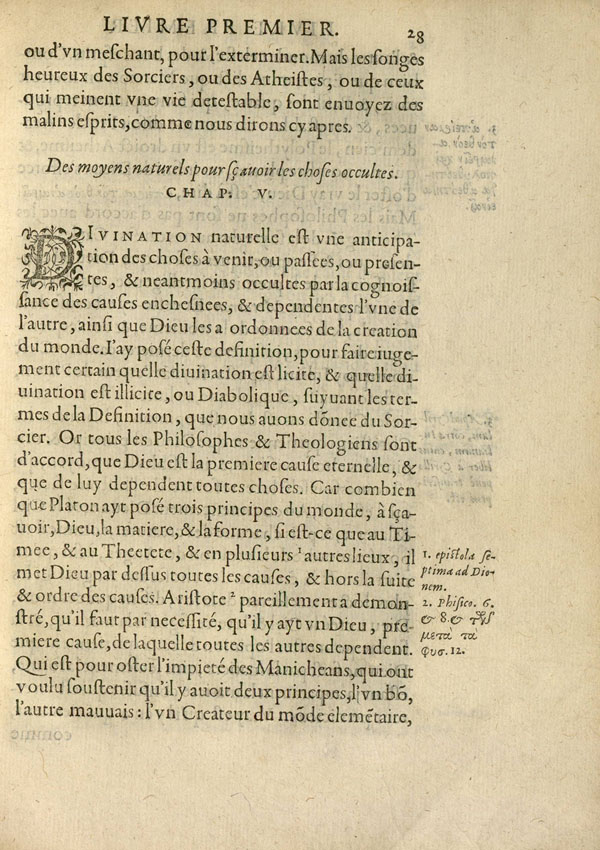 LIVRE PREMIER.
28
ou d'vn meſchant, pour l'exterminer. Mais les ſonges
heureux des Sorciers, ou des Atheiſtes, ou de ceux
qui meinent vne vie deteſtable, ſont enuoyez des
malins eſprits, comme nous dirons cy apres.
Des moyens naturels pour ſçauoir les choſes occultes.
CHAP. V.
DIVINATION naturelle eſt vne anticipa-
tion des choſes à venir, ou paſſees, ou preſen-
tes, & neantmoins occultes par la cognoiſ-
ſance des cauſes encheſnees, & dependentes l'vne de
l'autre, ainſi que Dieu les a ordonnees de la creation
du monde. I'ay poſé ceſte definition, pour faire iuge-
ment certain quelle diuination eſt licite, & quelle di-
uination eſt illicite, ou Diabolique, ſuyuant les ter-
mes de la Definition, que nous auons dōnee du Sor-
cier. Or tous les Philoſophes & Theologiens ſont
d'accord, que Dieu eſt la premiere cauſe eternelle, &
que de luy dependent toutes choſes. Car combien
que Platon ayt poſé trois principes du monde, à ſça-
uoir, Dieu, la matiere, & la forme, ſi eſt-ce que au Ti-
mee, & au Theetete, & en pluſieurs ¹ autres lieux, il
met Dieu par deſſus toutes les cauſes, & hors la ſuite
& ordre des cauſes. Ariſtote ² pareillement a demon-
ſtré, qu'il faut par neceſſité, qu'il y ayt vn Dieu, pre-
miere cauſe, de laquelle toutes les autres dependent.
Qui eſt pour oſter l'impieté des Manicheans, qui ont
voulu ſouſtenir qu'il y auoit deux principes, l'vn bō,
l'autre mauuais : l'vn Createur du mōde elemētaire,
1. epiſtola ſe-
ptima ad Dio-
nem.
2. Phiſico. 6.
& 8. & τοῖς
μετὰ τὰ
φυσ. 12.